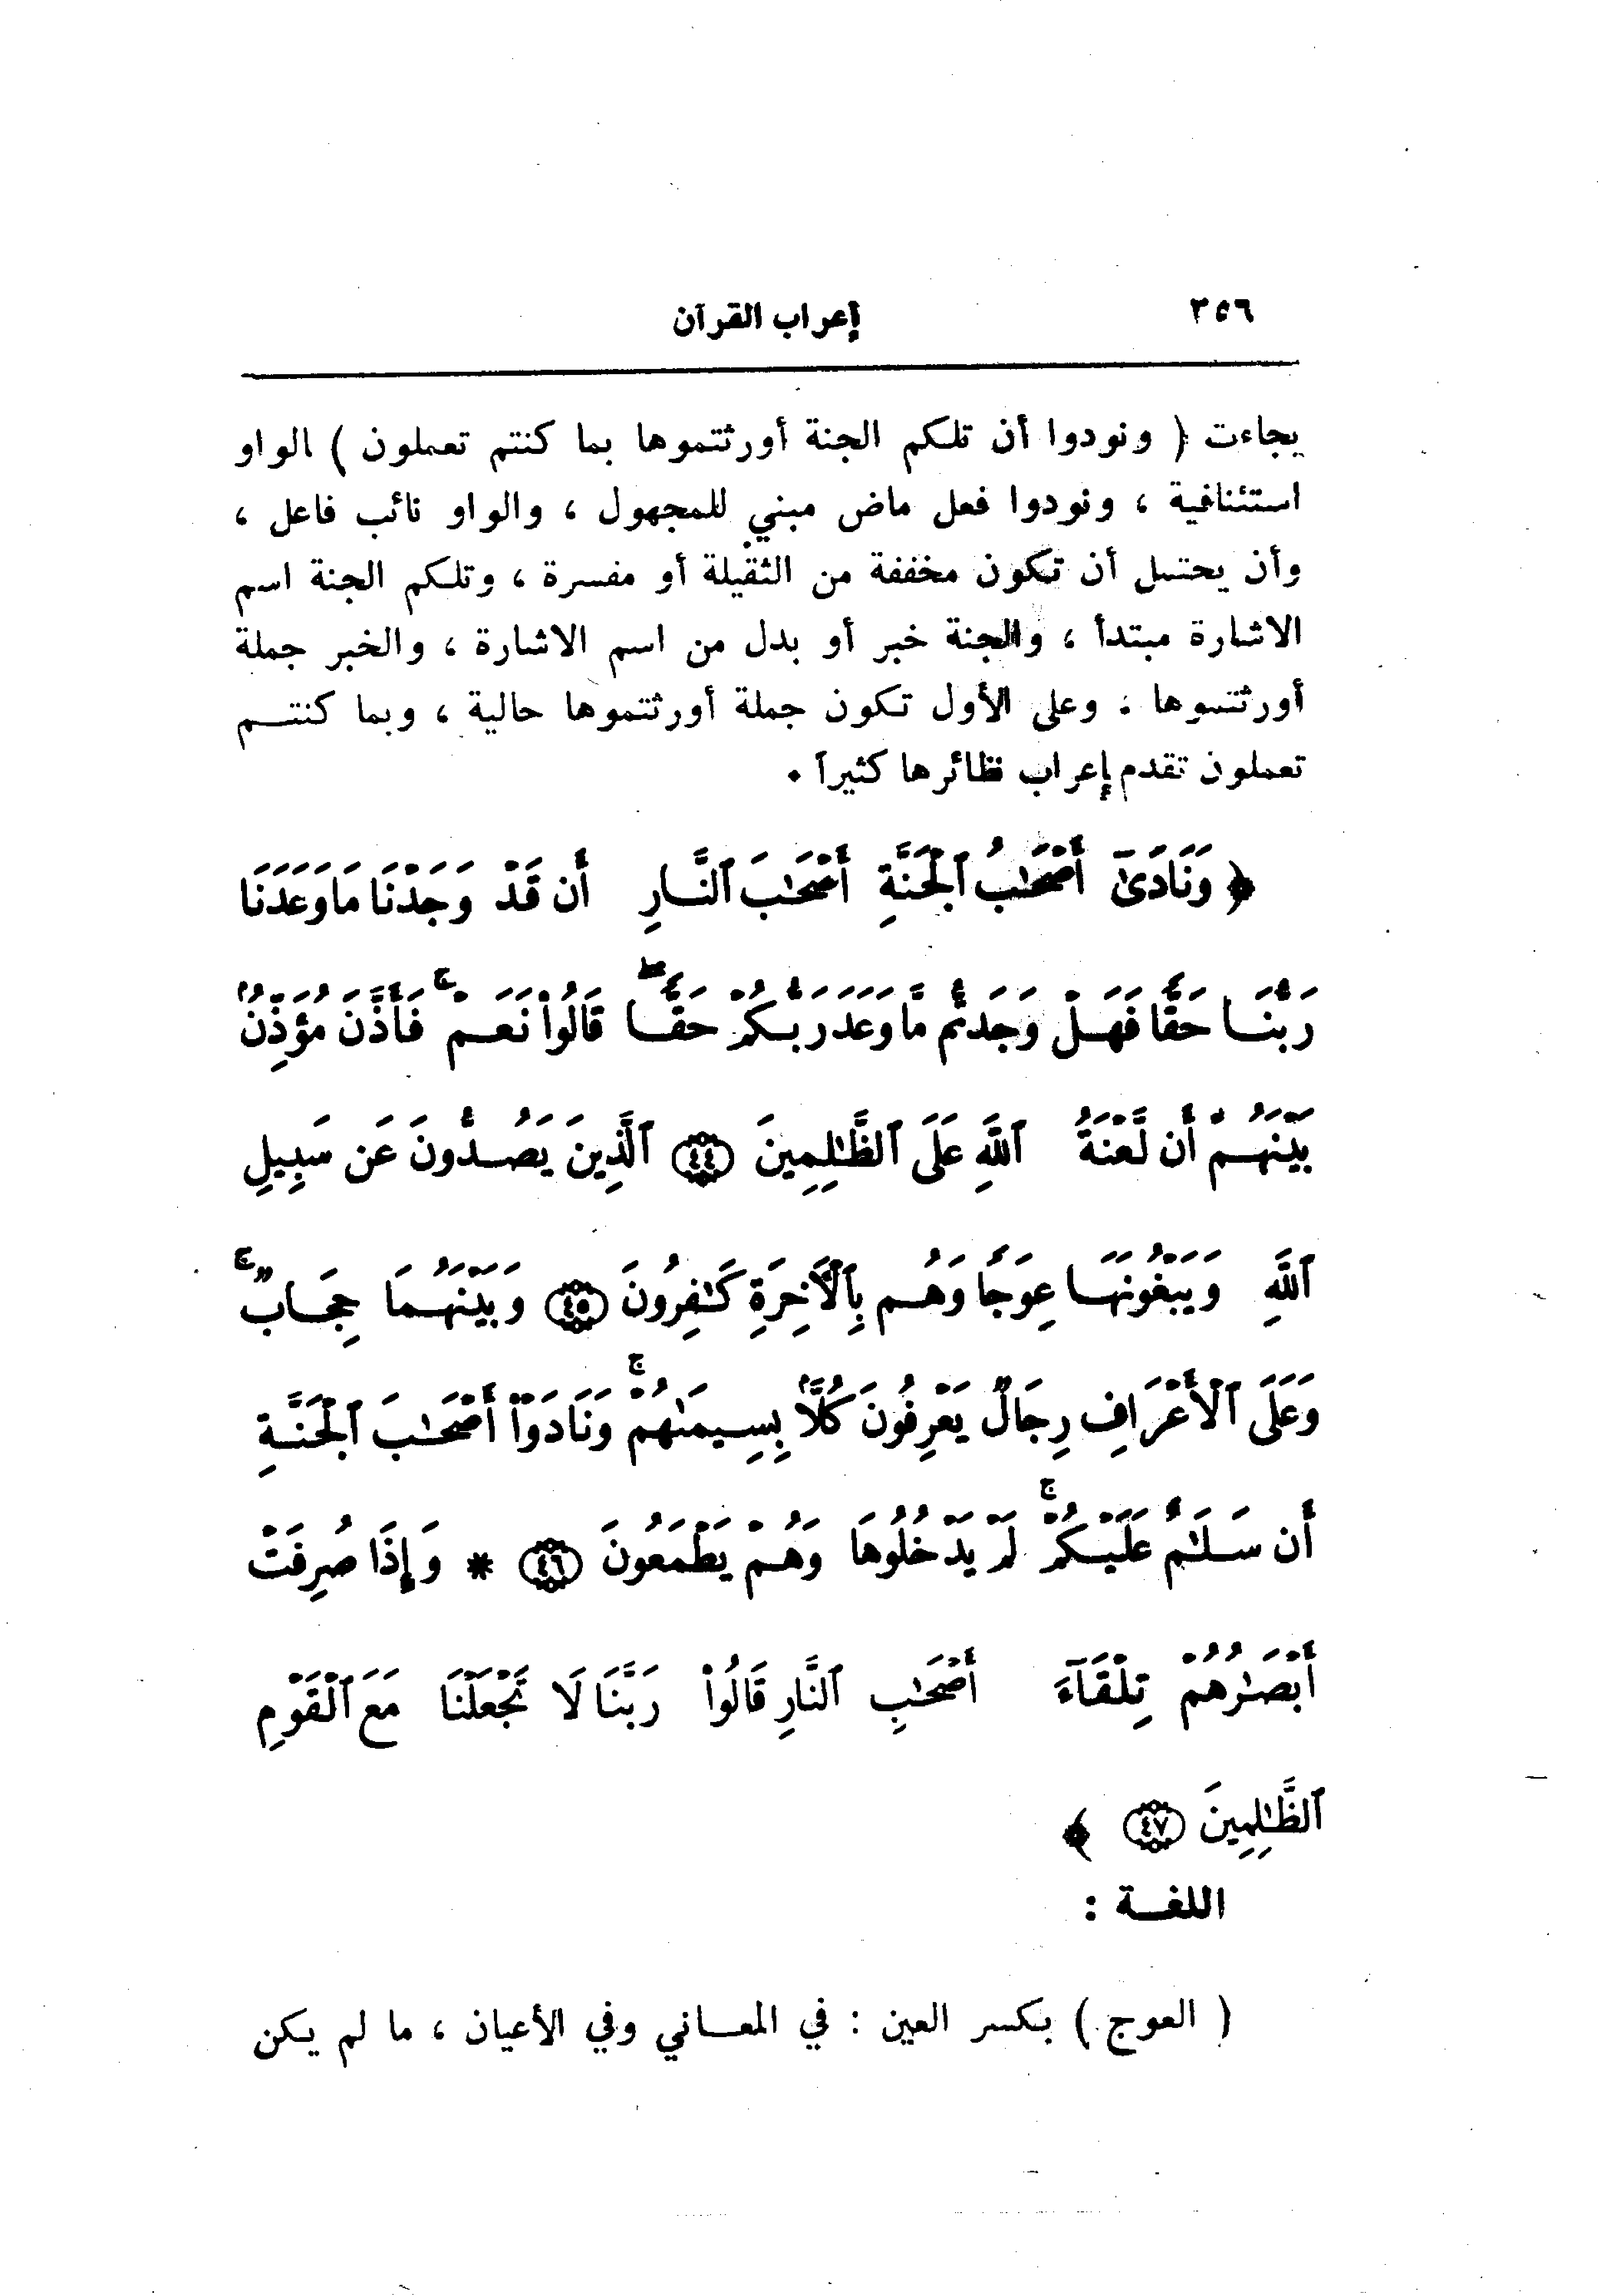 ٣٥٦ إعراب القرآن
بجاءت ( ونودوا أن تلكم الجنة أورثتموها بما كنتم تعملون ) الواو
استئنافية ، ونودوا فعل ماض مبني للمجهول ، والواو نائب فاعل ،
وأن يحتمل أن تكون مخففة من الثقيلة أو مفسرة ، وتلكم الجنة اسم
الاشارة مبتدأ ، والجنة خبر أو بدل من اسم الاشارة ، والخبر جملة
أورثتموها . وعلى الأول تكون جملة أورثتموها حالية ، وبما كنتم
تعملون تقدم إعراب نظائرها كثيراً .
﴿ وَنَادَىٰٓ أَصْحَٰبُ ٱلْجَنَّةِ أَصْحَٰبَ ٱلنَّارِ أَن قَدْ وَجَدْنَا مَا وَعَدَنَا
رَبُّنَا حَقًّا فَهَلْ وَجَدتُّم مَّا وَعَدَ رَبُّكُمْ حَقًّا ۖ قَالُوا۟ نَعَمْ ۚ فَأَذَّنَ مُؤَذِّنٌۢ
بَيْنَهُمْ أَن لَّعْنَةُ ٱللَّهِ عَلَى ٱلظَّٰلِمِينَ ﴿٤٤﴾ ٱلَّذِينَ يَصُدُّونَ عَن سَبِيلِ
ٱللَّهِ وَيَبْغُونَهَا عِوَجًا وَهُم بِٱلْأَخِرَةِ كَٰفِرُونَ ﴿٤٥﴾ وَبَيْنَهُمَا حِجَابٌ ۚ
وَعَلَى ٱلْأَعْرَافِ رِجَالٌ يَعْرِفُونَ كُلًّۢا بِسِيمَىٰهُمْ ۚ وَنَادَوْا۟ أَصْحَٰبَ ٱلْجَنَّةِ
أَن سَلَٰمٌ عَلَيْكُمْ ۚ لَمْ يَدْخُلُوهَا وَهُمْ يَطْمَعُونَ ﴿٤٦﴾ * وَإِذَا صُرِفَتْ
أَبْصَٰرُهُمْ تِلْقَآءَ أَصْحَٰبِ ٱلنَّارِ قَالُوا۟ رَبَّنَا لَا تَجْعَلْنَا مَعَ ٱلْقَوْمِ
ٱلظَّٰلِمِينَ ﴿٤٧﴾ ﴾
اللغة :
( العوج ) بكسر العين : في المعاني وفي الأعيان ، ما لم يكن